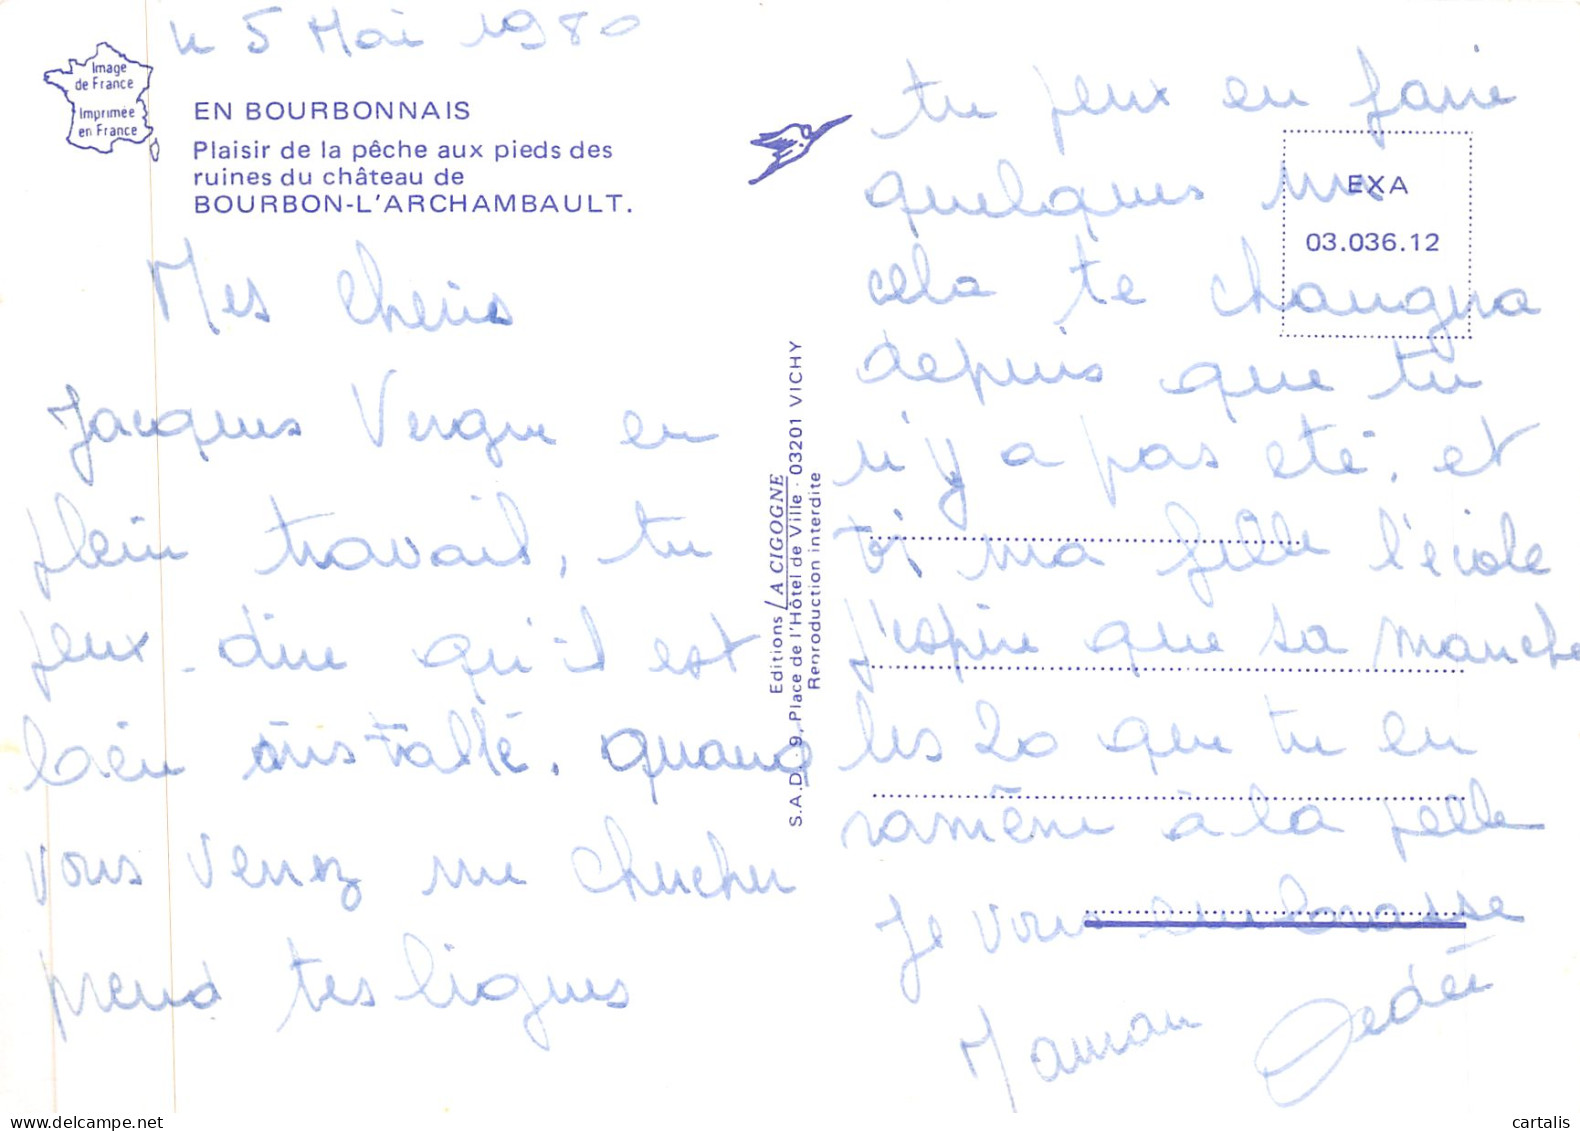 le 5 Mai 1980
Image
de France
Imprimée
en France
EN BOURBONNAIS
Plaisir de la pêche aux pieds des
ruines du château de
BOURBON-L'ARCHAMBAULT.
Mes cheris
Jacques Vergne en
plein travail, tu
peux dire qu'il est
bien installé. quand
vous venez me chercher
prend tes lignes
Editions LA CIGOGNE
S.A.D. 9, Place de l'Hôtel de Ville - 03201 VICHY
Reproduction interdite
EXA
03.036.12
tu peux en faire
quelques
cela te changera
depuis que tu
n'y a pas eté, et
toi ma fille l'école
j'espère que sa manche
les 20 que tu en
ramène à la pelle
Je vous embrasse
Maman Dédée
cartalis
www.delcampe.net